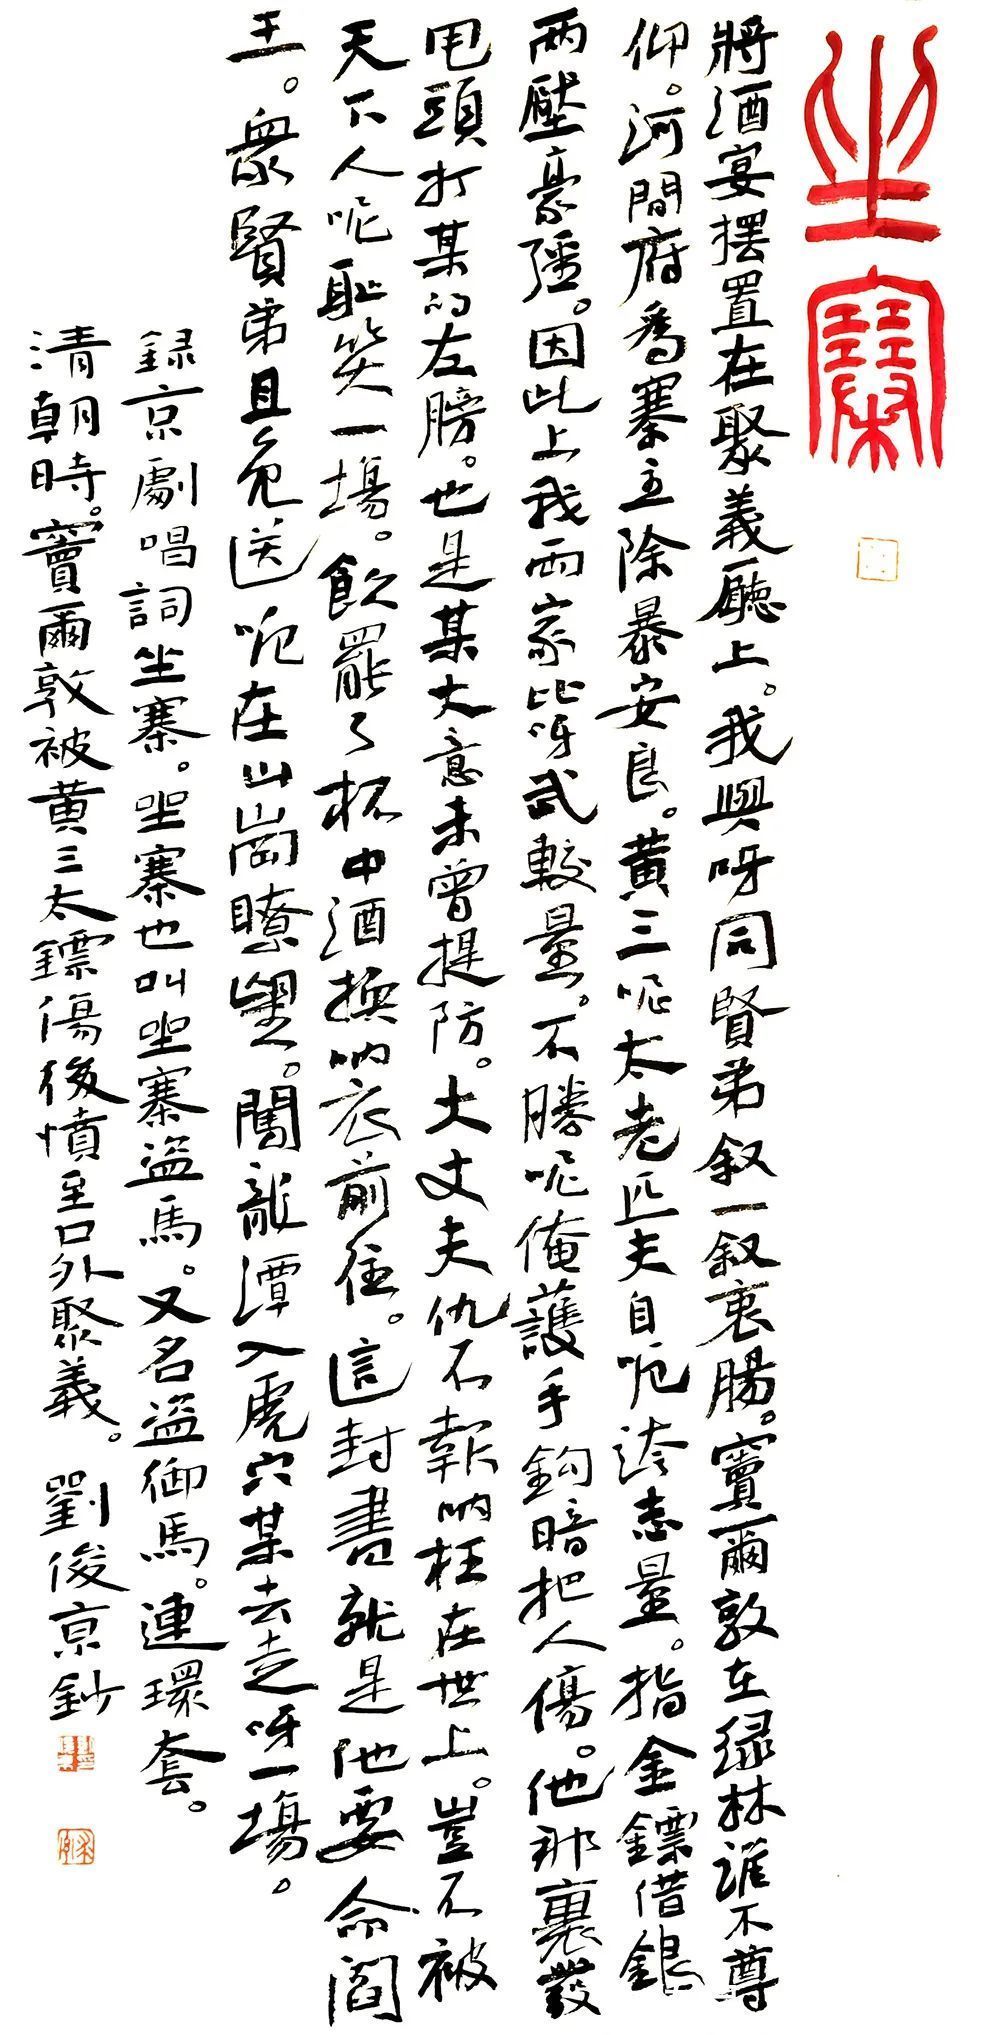 坐寨
將酒宴擺置在聚義廳上。我與呀同賢弟叙一叙衷腸。竇爾敦在緑林誰不尊
仰。河間府爲寨主除暴安良。黃三呢太老匹夫自呃誇志量。指金鏢借銀
兩壓豪强。因此上我两家比呀武較量。不勝呢俺護手鈎暗把人傷。他那裏發
甩頭打某的左膀。也是某大意未曾提防。大丈夫仇不報吶枉在世上。豈不被
天下人呢恥笑一場。飲罷了杯中酒換吶衣前往。這封書就是他要命閻
王。衆賢弟且免送呃在山崗瞭望。闖龍潭入虎穴某去走呀一場。
録京劇唱詞坐寨。坐寨也叫坐寨盜馬。又名盜御馬。連環套。
清朝時。竇爾敦被黃三太鏢傷後憤至口外聚義。劉俊京鈔